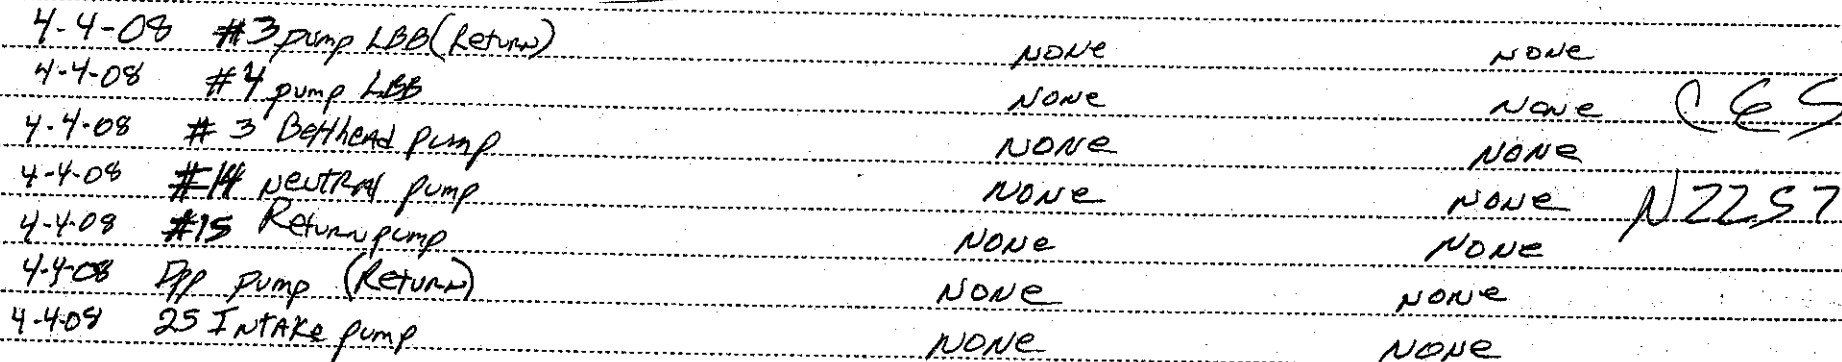 4-4-08 #3 pump LBB (Return) NONE NONE
4-4-08 #4 pump LBB NONE NONE CES
4-4-08 #3 Belthead pump NONE NONE
4-4-08 #14 Neutral pump NONE NONE
4-4-08 #15 Return pump NONE NONE
4-4-08 pump (Return) NONE NONE
4-4-08 25 Intake pump NONE NONE